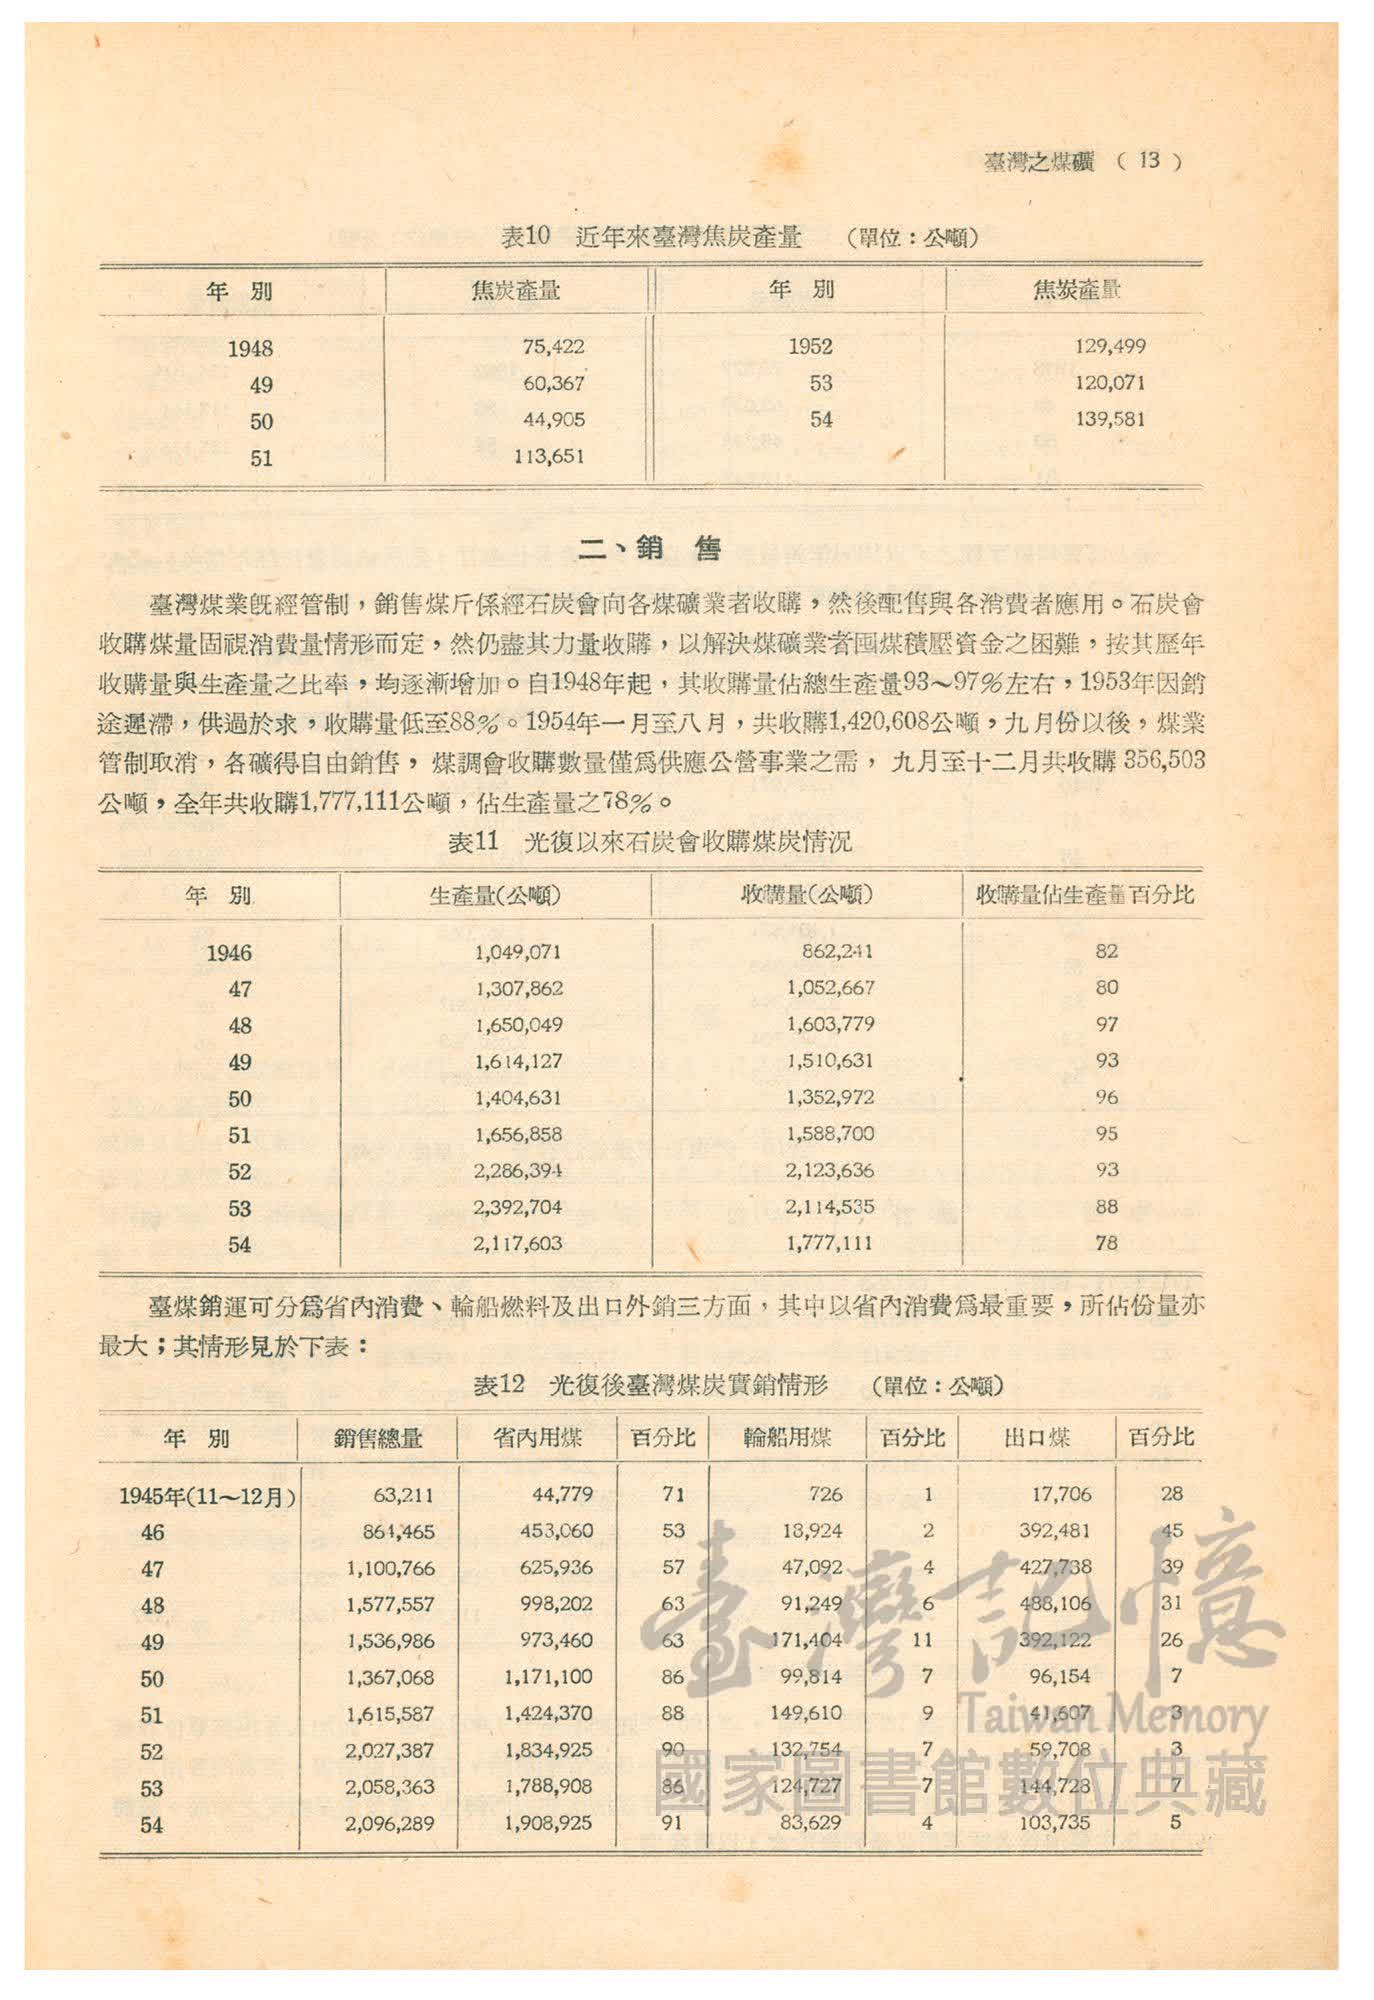 臺灣之煤礦 ( 13 )
表10 近年來臺灣焦炭產量 (單位：公噸)
年 別 焦炭產量 年 別 焦炭產量
1948 75,422 1952 129,499
49 60,367 53 120,071
50 44,905 54 139,581
51 113,651
二、銷 售
臺灣煤業旣經管制，銷售煤斤係經石炭會向各煤礦業者收購，然後配售與各消費者應用。石炭會
收購煤量固視消費量情形而定，然仍盡其力量收購，以解決煤礦業者囤煤積壓資金之困難，按其歷年
收購量與生產量之比率，均逐漸增加。自1948年起，其收購量佔總生產量93～97%左右，1953年因銷
途遲滯，供過於求，收購量低至88%。1954年一月至八月，共收購1,420,608公噸，九月份以後，煤業
管制取消，各礦得自由銷售，煤調會收購數量僅爲供應公營事業之需，九月至十二月共收購 356,503
公噸，全年共收購1,777,111公噸，佔生產量之78%。
表11 光復以來石炭會收購煤炭情況
年 別 生產量(公噸) 收購量(公噸) 收購量佔生產量百分比
1946 1,049,071 862,241 82
47 1,307,862 1,052,667 80
48 1,650,049 1,603,779 97
49 1,614,127 1,510,631 93
50 1,404,631 1,352,972 96
51 1,656,858 1,588,700 95
52 2,286,394 2,123,636 93
53 2,392,704 2,114,535 88
54 2,117,603 1,777,111 78
臺煤銷運可分爲省內消費、輪船燃料及出口外銷三方面，其中以省內消費爲最重要，所佔份量亦
最大；其情形見於下表：
表12 光復後臺灣煤炭實銷情形 (單位：公噸)
年 別 銷售總量 省內用煤 百分比 輪船用煤 百分比 出口煤 百分比
1945年(11～12月) 63,211 44,779 71 726 1 17,706 28
46 864,465 453,060 53 18,924 2 392,481 45
47 1,100,766 625,936 57 47,092 4 427,738 39
48 1,577,557 998,202 63 91,249 6 488,106 31
49 1,536,986 973,460 63 171,404 11 392,122 26
50 1,367,068 1,171,100 86 99,814 7 96,154 7
51 1,615,587 1,424,370 88 149,610 9 41,607 3
52 2,027,387 1,834,925 90 132,754 7 59,708 3
53 2,058,363 1,788,908 86 124,727 7 144,728 7
54 2,096,289 1,908,925 91 83,629 4 103,735 5
臺灣記憶
Taiwan Memory
國家圖書館數位典藏